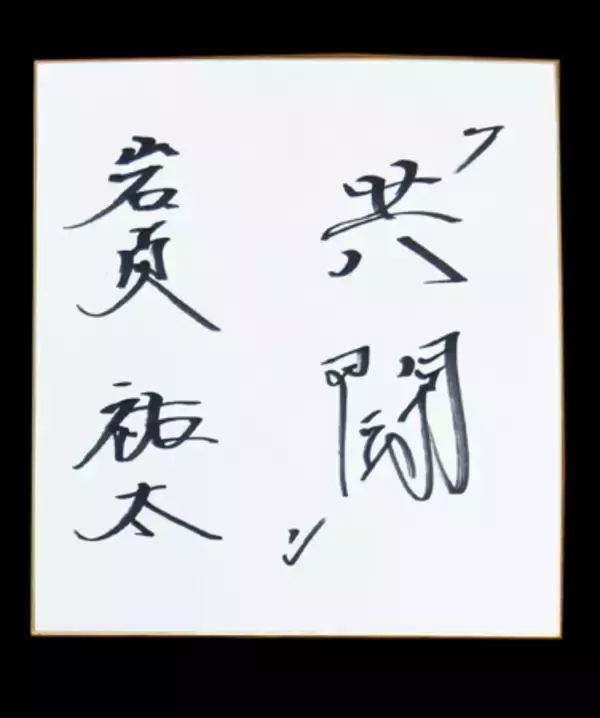 〝共闘〟
岩貞 祐太